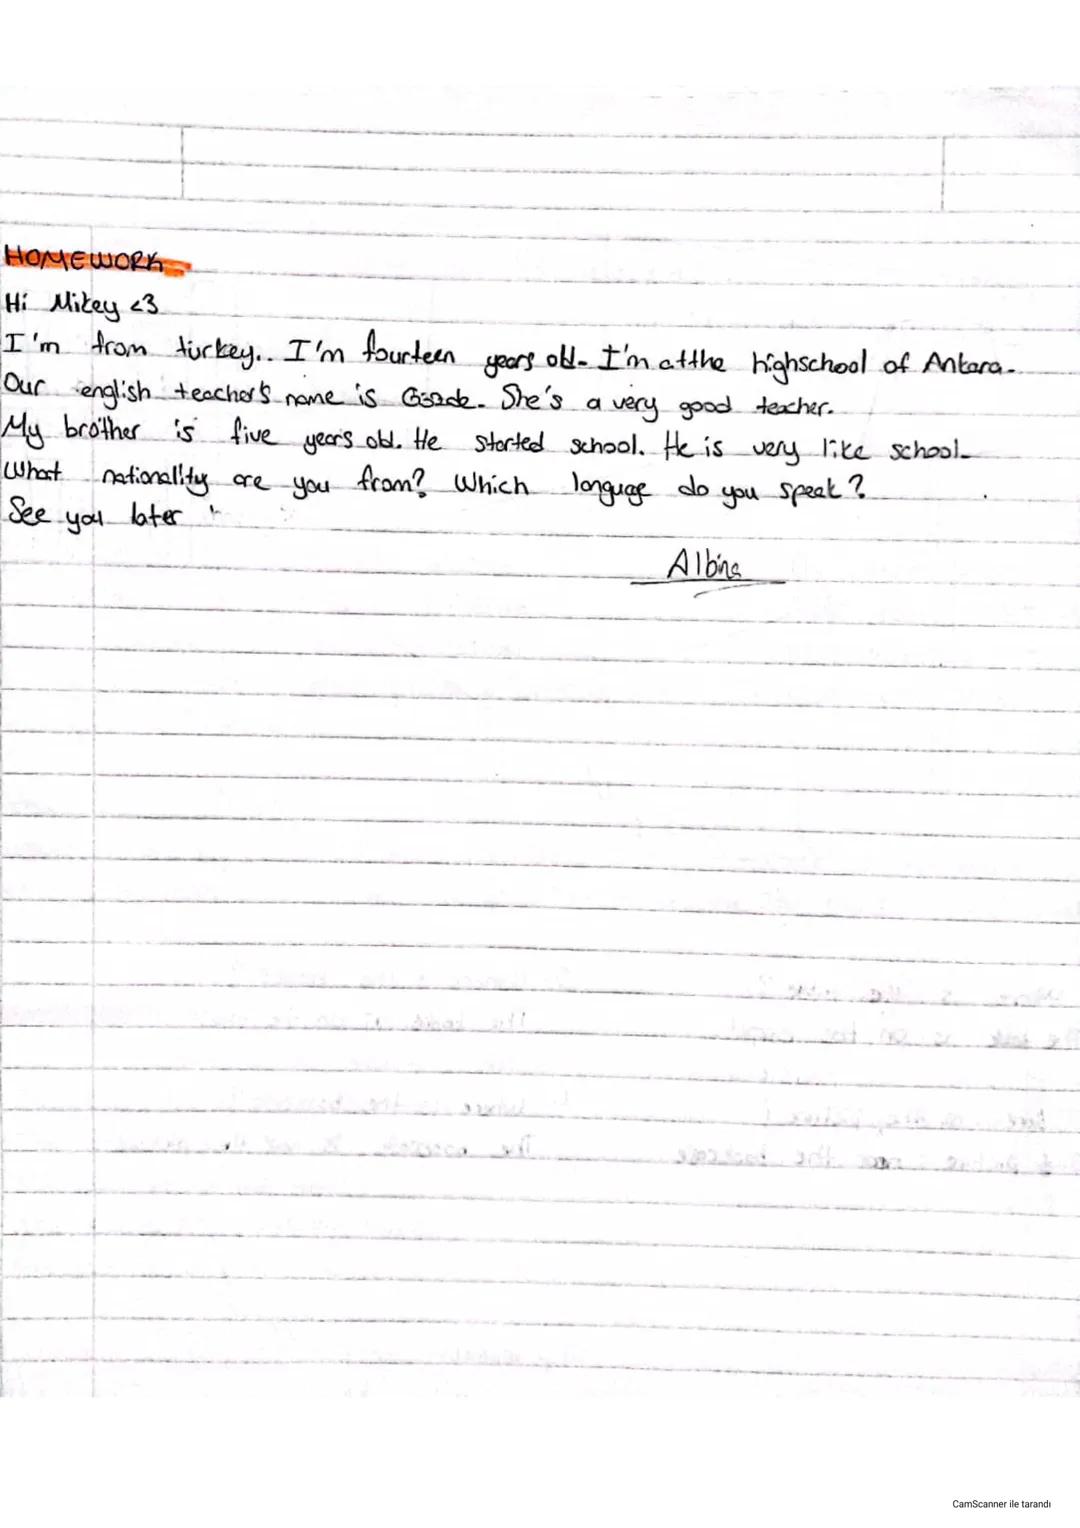 HOMEWORK
Hi Mikey <3
I'm from turkey.. I'm fourteen years old. I'm at the highschool of Ankara.
Our english teacher's name is Gözde. She's a very good teacher.
My brother is five years old. He started school. He is very like school.
What nationality are you from? Which languge do you speak?
See you later
Albina
CamScanner ile tarandı